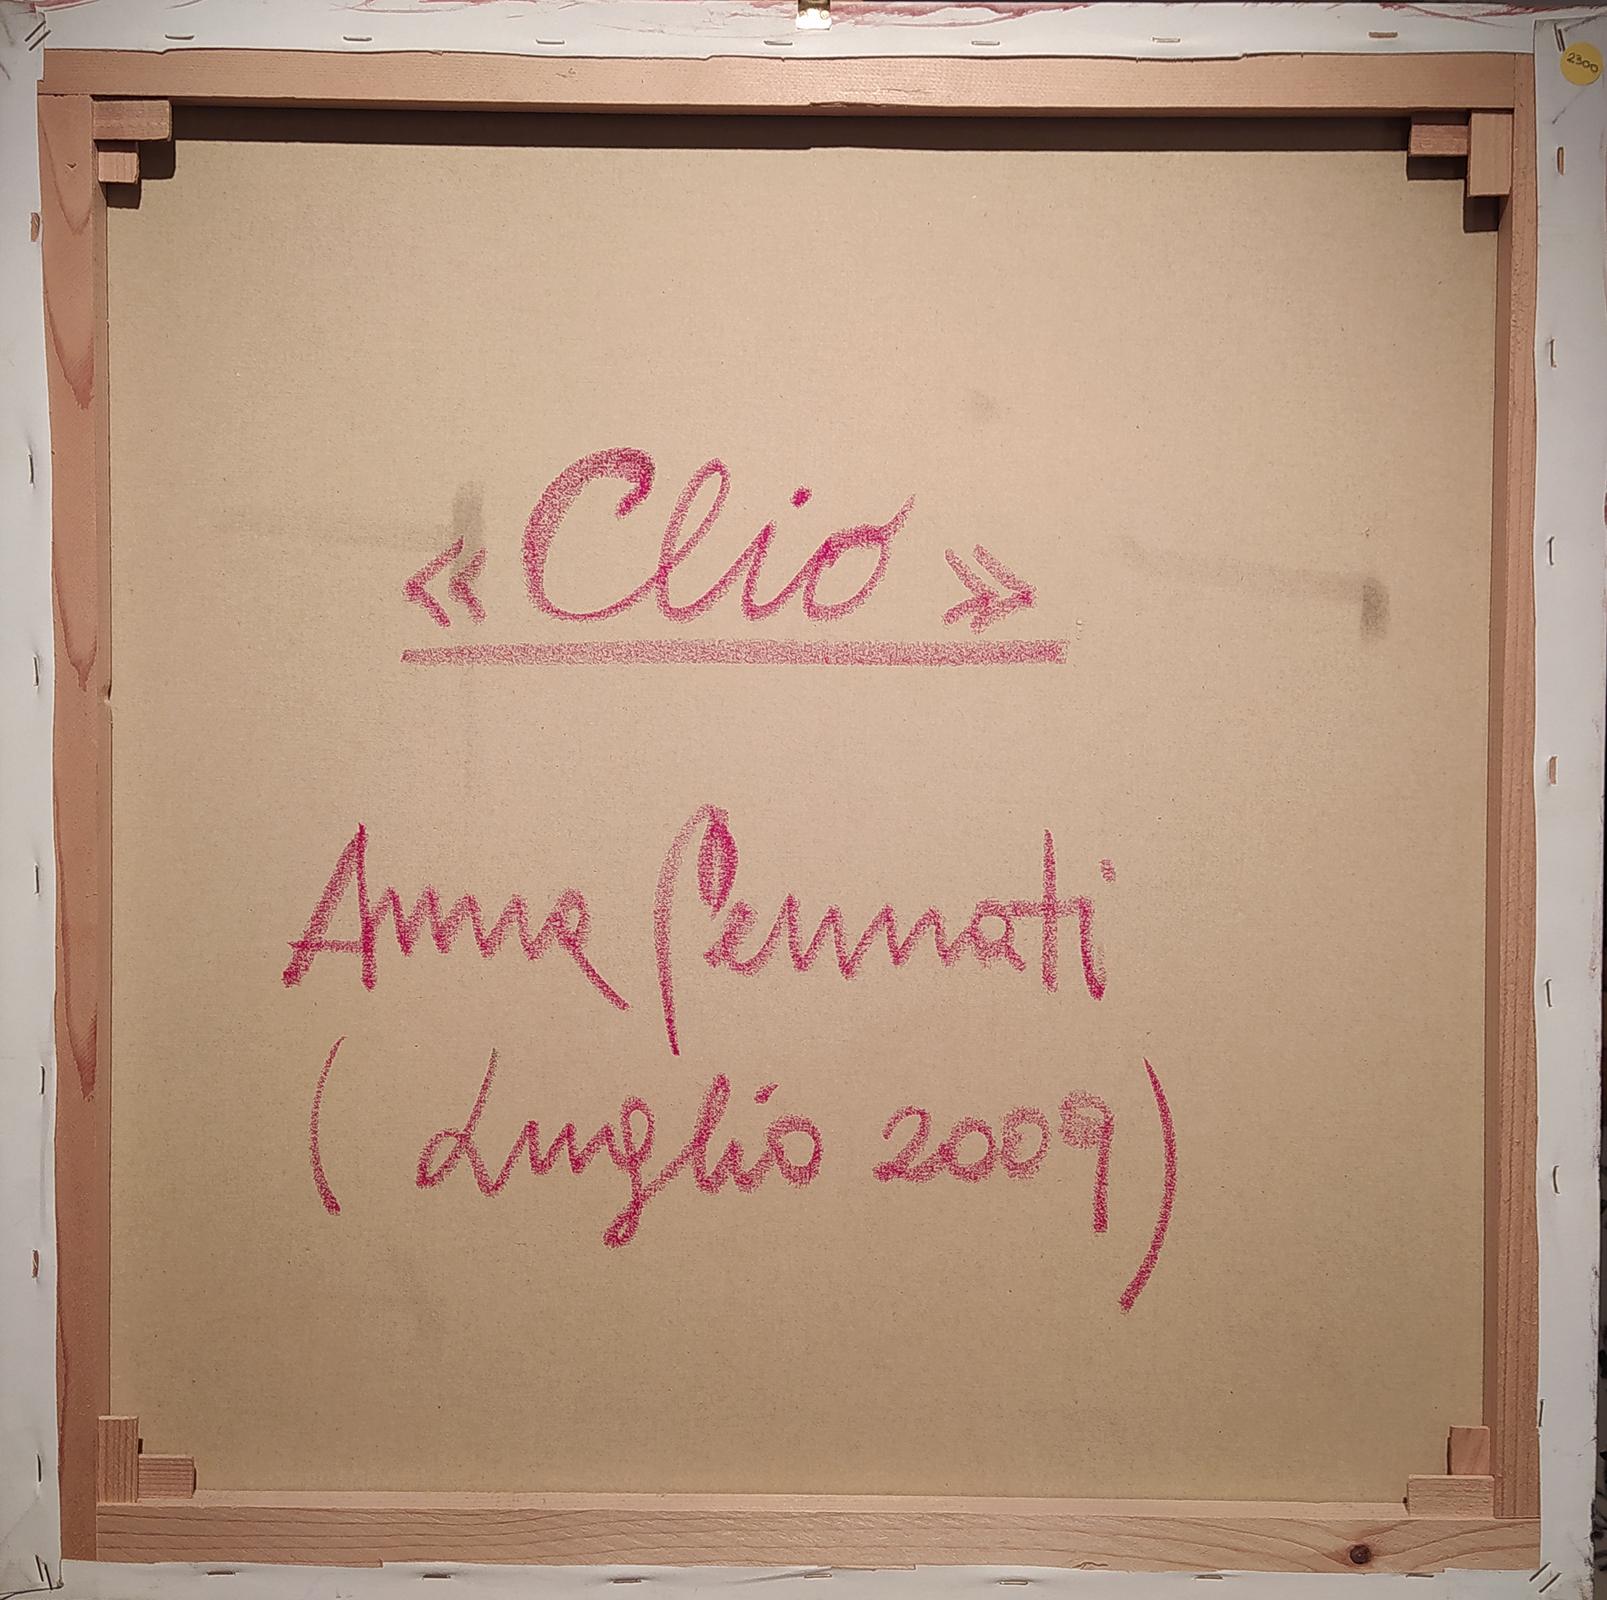 2300
« Clio »
Anna Pennati
( Luglio 2009 )